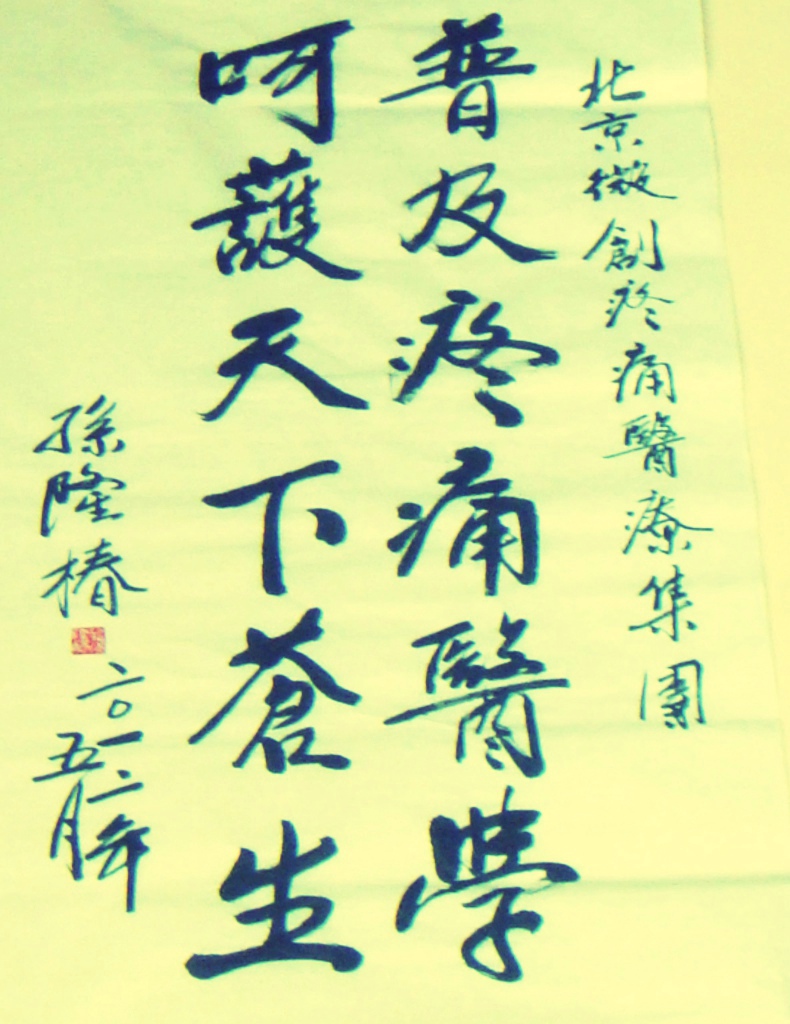 北京微創疼痛醫療集團
普及疼痛醫學
呵護天下蒼生
孫隆椿
二〇一二年
五月